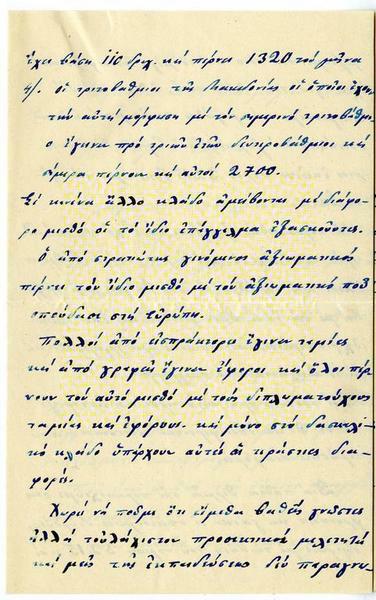 ἔχει βάση 110 δρχ. καὶ πέρνει 1320 τὸν μῆνα
4). οἱ τριτοβάθμιοι τῆς Μακεδονίας οἱ ὁποῖοι ἔχουν
τὴν αὐτὴ μόρφωση μὲ τὸν σημερινὸ τριτοβάθμιο
ἔγιναν πρὸ τριῶν ἐτῶν δευτεροβάθμιοι καὶ
σήμερα πέρνουν καὶ αὐτοὶ 2700.
Σὲ κανένα ἄλλο κλάδο ἀμείβονται μὲ διάφο-
ρο μισθὸ οἱ τὸ ἴδιο ἐπάγγελμα ἐξασκοῦντες.
Ὁ ἀπὸ στρατιώτης γενόμενος ἀξιωματικὸς
πέρνει τὸν ἴδιο μισθὸ μὲ τὸν ἀξιωματικὸ ποὺ
σπούδασε στὴν εὐρώπη.
Πολλοὶ ἀπὸ εἰσπράκτορες ἔγιναν ταμίες
καὶ ἀπὸ γραφεῖς ἔγιναν ἔφοροι καὶ ὅλοι πέρ-
νουν τὸν αὐτὸ μισθὸ μὲ τοὺς διπλωματούχους
ταμίες καὶ ἐφόρους. καὶ μόνο στὸ δασκαλι-
κὸ κλάδο ὑπάρχουν αὐτὲς οἱ τεράστιες δια-
φορές.
Χωρὶς νὰ ποῦμε ὅτι εἴμεθα βαθεῖς γνῶστες
ἀλλὰ τοὐλάχιστον προσεκτικοὶ μελετηταὶ
καὶ μεῖς τῆς ἐκπαιδεύσεως δὲν παραγνω-